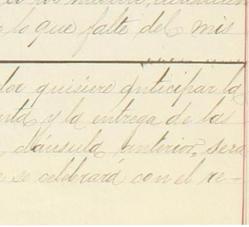 lo que falte del mis
dor quisiere anticipar la
enta y la entrega de las
cláusula anterior, será
se celebrará con el re-